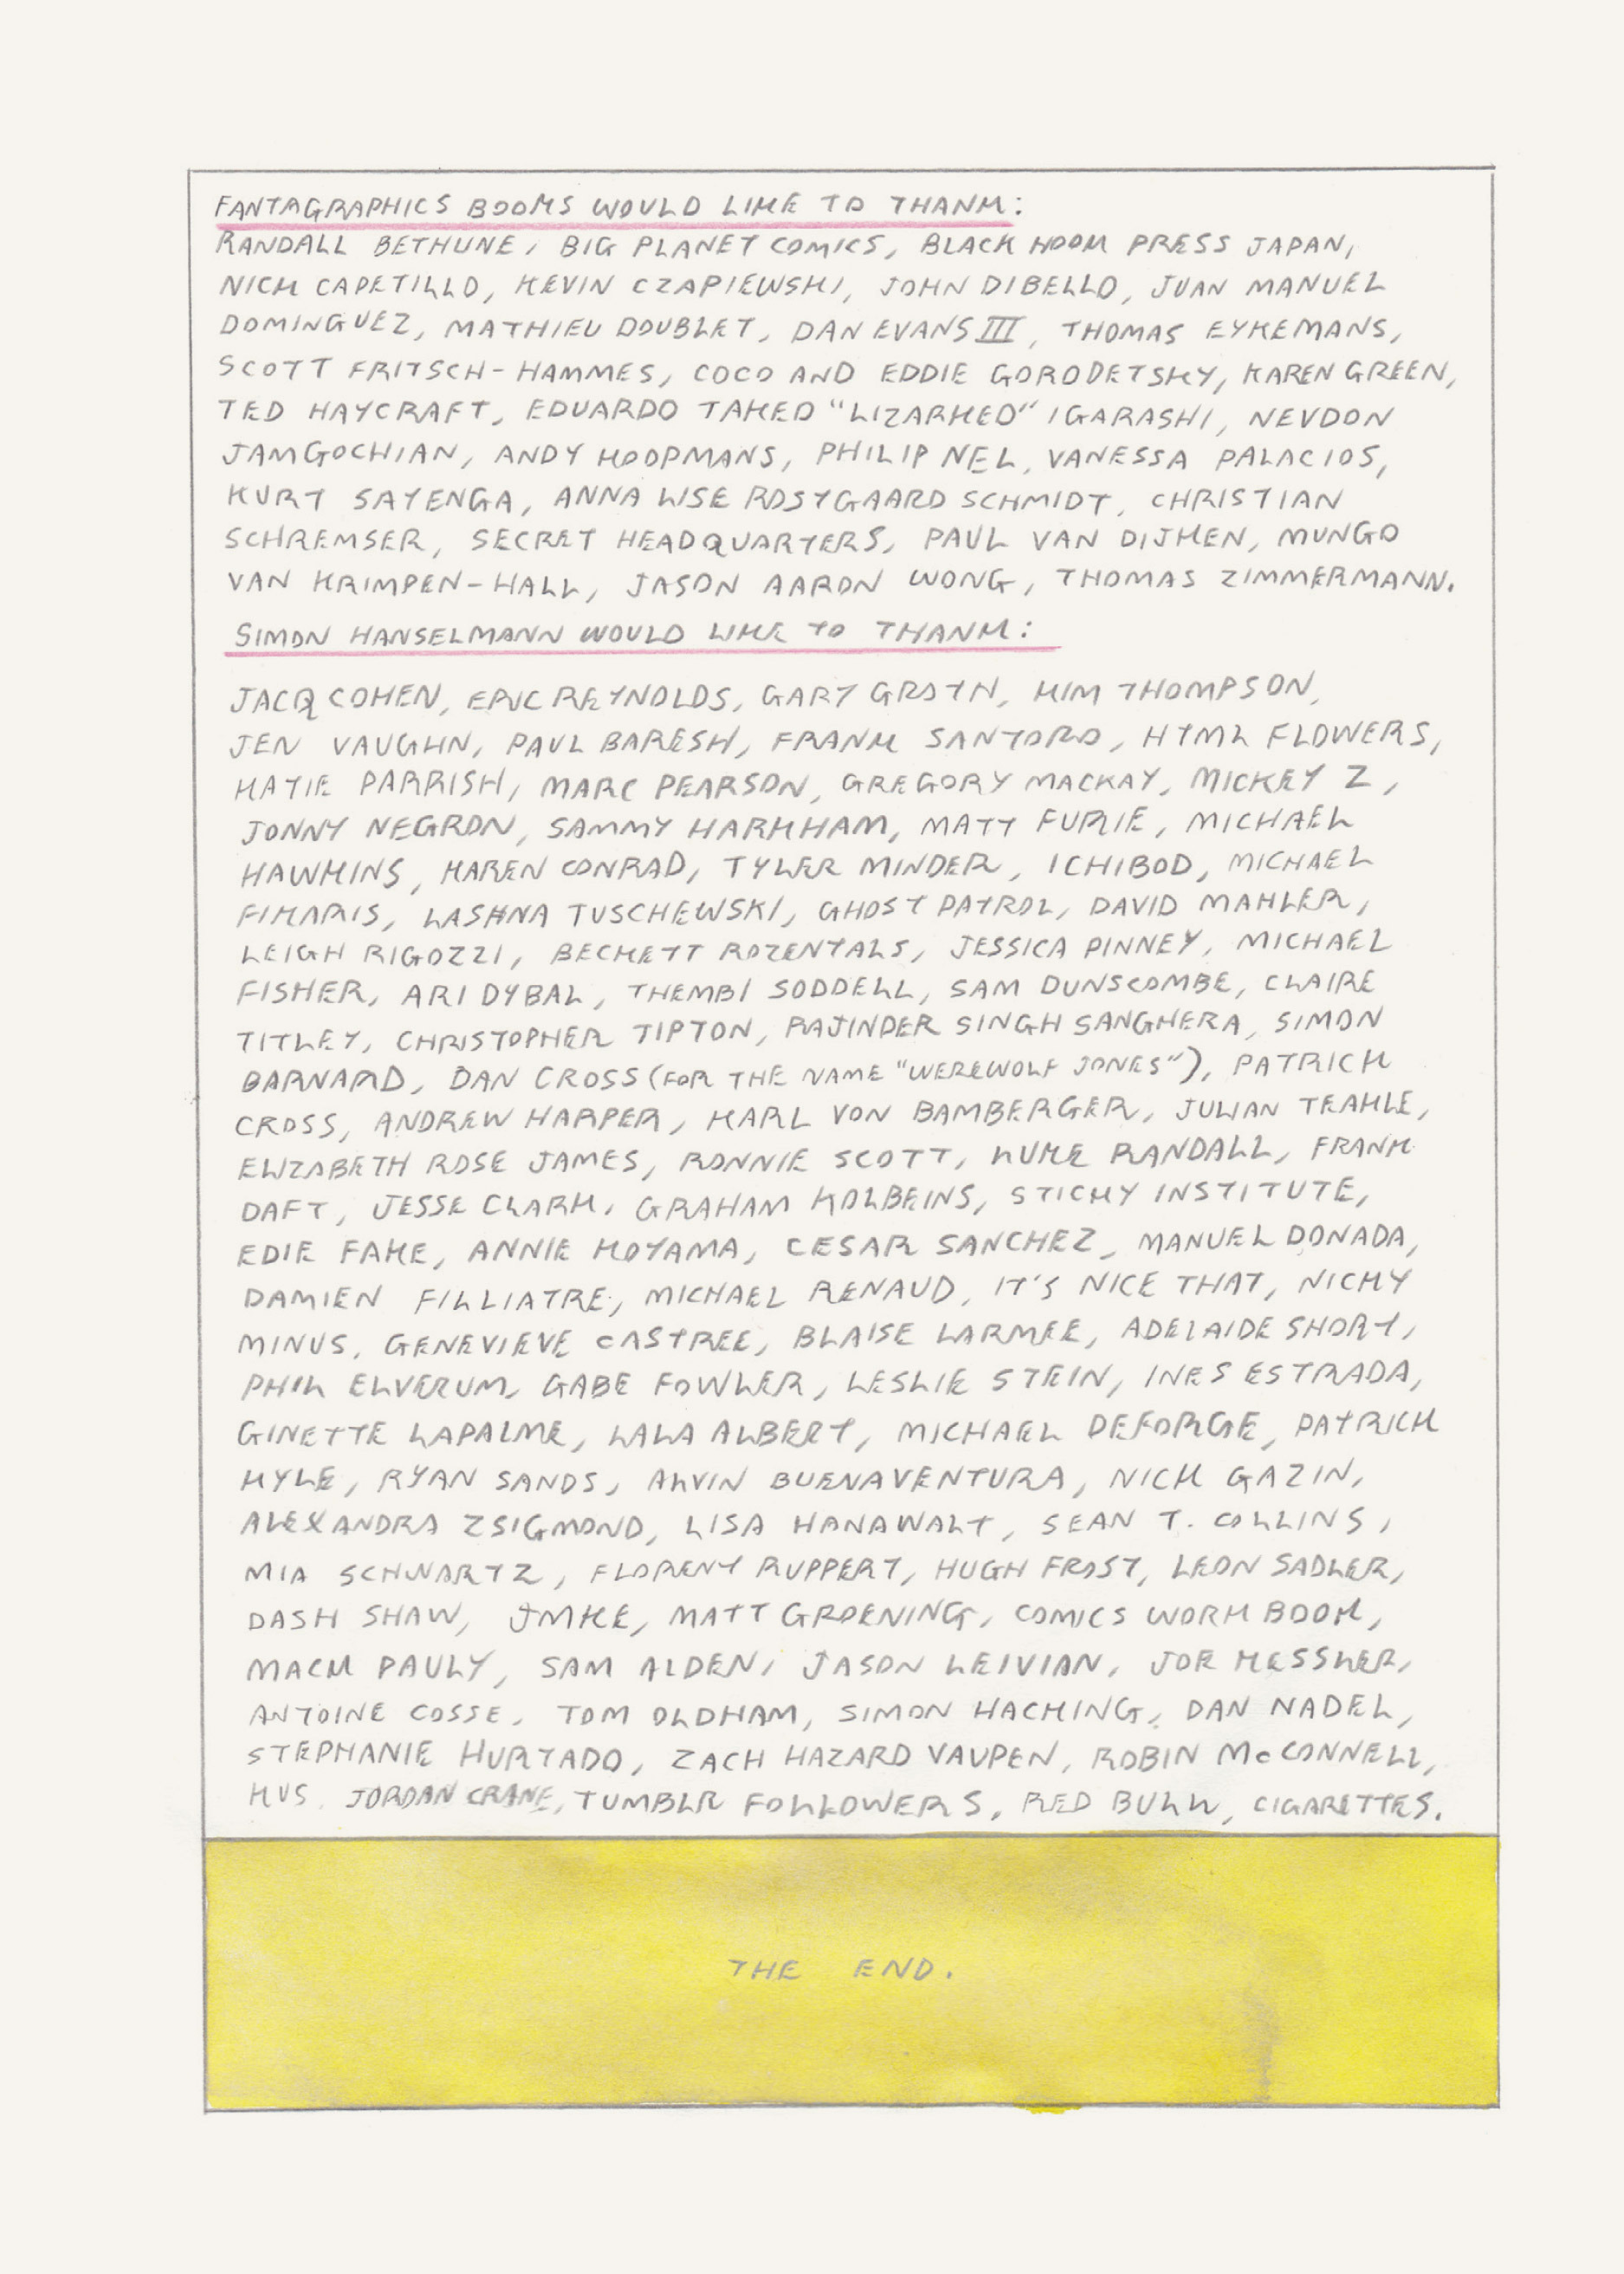 FANTAGRAPHICS BOOKS WOULD LIKE TO THANK:
RANDALL BETHUNE, BIG PLANET COMICS, BLACK HOOK PRESS JAPAN,
NICK CAPETILLO, KEVIN CZAPIEWSKI, JOHN DIBELLO, JUAN MANUEL
DOMINGUEZ, MATHIEU DOUBLET, DAN EVANS III, THOMAS EYKEMANS,
SCOTT FRITSCH-HAMMES, COCO AND EDDIE GORODETSKY, KAREN GREEN,
TED HAYCRAFT, EDUARDO TAKEO "LIZARKEO" IGARASHI, NEVDON
JAMGOCHIAN, ANDY KOOPMANS, PHILIP NEL, VANESSA PALACIOS,
KURT SAYENGA, ANNA LISE ROSTGAARD SCHMIDT, CHRISTIAN
SCHREMSER, SECRET HEADQUARTERS, PAUL VAN DIJKEN, MUNGO
VAN KRIMPEN-HALL, JASON AARON WONG, THOMAS ZIMMERMANN.
SIMON HANSELMANN WOULD LIKE TO THANK:
JACQ COHEN, ERIC REYNOLDS, GARY GROTH, KIM THOMPSON,
JEN VAUGHN, PAUL BARESH, FRANK SANTORO, HTML FLOWERS,
KATIE PARRISH, MARC PEARSON, GREGORY MACKAY, MICKEY Z,
JONNY NEGRON, SAMMY HARKHAM, MATT FURIE, MICHAEL
HAWKINS, KAREN CONRAD, TYLER MINDER, ICHIBOD, MICHAEL
FIKARIS, LASHNA TUSCHEWSKI, GHOST PATROL, DAVID MAHLER,
LEIGH RIGOZZI, BECKETT ROZENTALS, JESSICA PINNEY, MICHAEL
FISHER, ARI DYBAL, THEMBI SODDELL, SAM DUNSCOMBE, CLAIRE
TITLEY, CHRISTOPHER TIPTON, RAJINDER SINGH SANGHERA, SIMON
BARNARD, DAN CROSS (FOR THE NAME "WEREWOLF JONES"), PATRICK
CROSS, ANDREW HARPER, KARL VON BAMBERGER, JULIAN TEAKLE,
ELIZABETH ROSE JAMES, RONNIE SCOTT, LUKE RANDALL, FRANK
DAFT, JESSE CLARK, GRAHAM KOLBEINS, STICKY INSTITUTE,
EDIE FAKE, ANNIE KOYAMA, CESAR SANCHEZ, MANUEL DONADA,
DAMIEN FILLIATRE, MICHAEL RENAUD, IT'S NICE THAT, NICKY
MINUS, GENEVIEVE CASTREE, BLAISE LARMEE, ADELAIDE SHORT,
PHIL ELVERUM, GABE FOWLER, LESLIE STEIN, INES ESTRADA,
GINETTE LAPALME, LALA ALBERT, MICHAEL DEFORGE, PATRICK
KYLE, RYAN SANDS, ALVIN BUENAVENTURA, NICK GAZIN,
ALEXANDRA ZSIGMOND, LISA HANAWALT, SEAN T. COLLINS,
MIA SCHWARTZ, FLORENT RUPPERT, HUGH FROST, LEON SADLER,
DASH SHAW, JMKE, MATT GROENING, COMICS WORKBOOK,
MACK PAULY, SAM ALDEN, JASON LEIVIAN, JOE KESSLER,
ANTOINE COSSE, TOM OLDHAM, SIMON HACKING, DAN NADEL,
STEPHANIE HURTADO, ZACH HAZARD VAUPEN, ROBIN McCONNELL,
KUS. JORDAN CRANE, TUMBLR FOLLOWERS, RED BULL, CIGARETTES.
THE END.